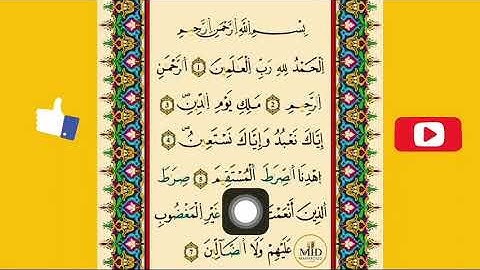 بِسْمِ اللَّهِ الرَّحْمَنِ الرَّحِيمِ
اَلْحَمْدُ لِلهِ رَبِّ الْعَلَمِينَ ١ اَلرَّحْمَنِ
الرَّحِيمِ ٢ مَلِكِ يَوْمِ الدِّينِ ٣
إِيَّاكَ نَعْبُدُ وَإِيَّاكَ نَسْتَعِينُ ٤
اِهْدِنَا الصِّرَطَ الْمُسْتَقِيمَ ٥ صِرَطَ
الَّذِينَ أَنْعَمْتَ غَيْرِ الْمَغْضُوبِ
عَلَيْهِمْ وَلَا الضَّآلِّينَ ٧